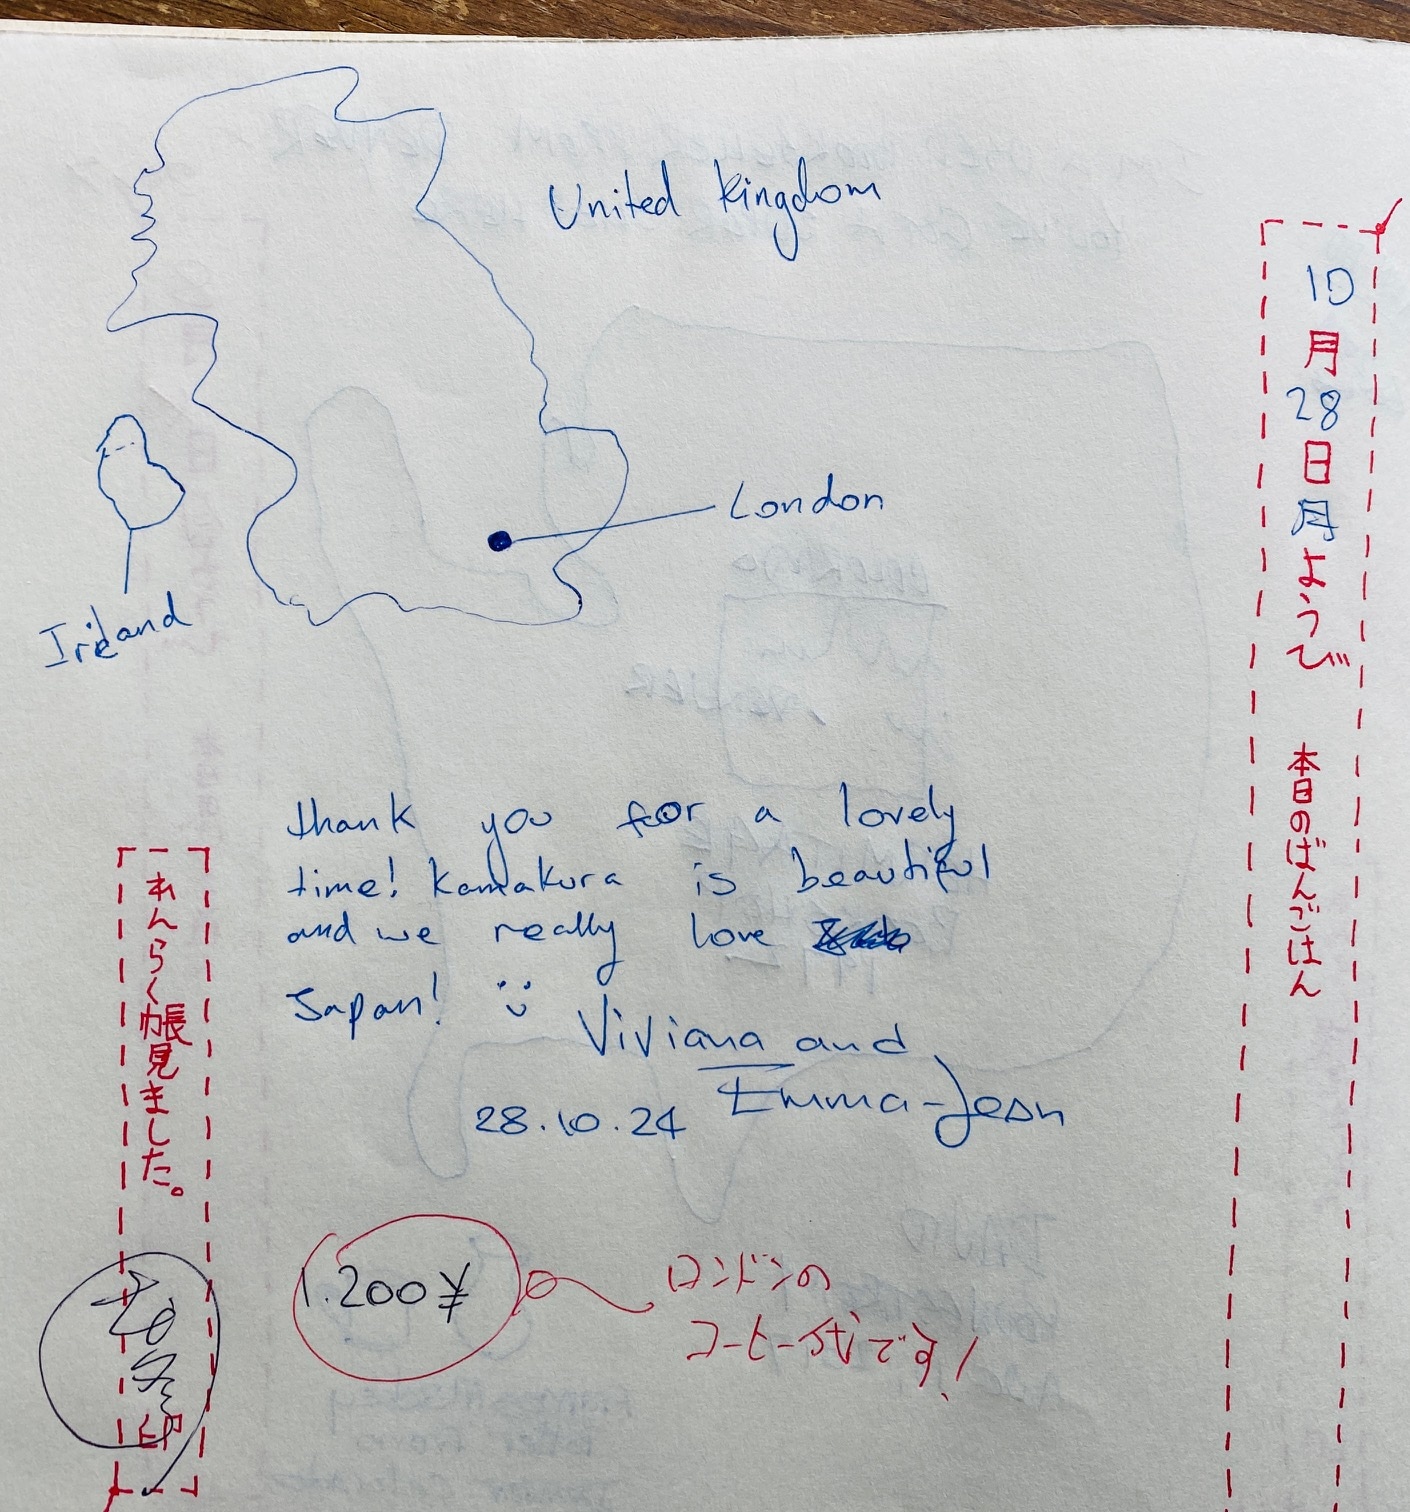 United Kingdom
London
Ireland
thank you for a lovely
time! Kamakura is beautiful
and we really love
Japan! :)
Viviana and
Emma-Jean
28.10.24
1.200¥
ロンドンの
コーヒー代です!
10月28日月ようび 本日のばんごはん
れんらく帳見ました。
印